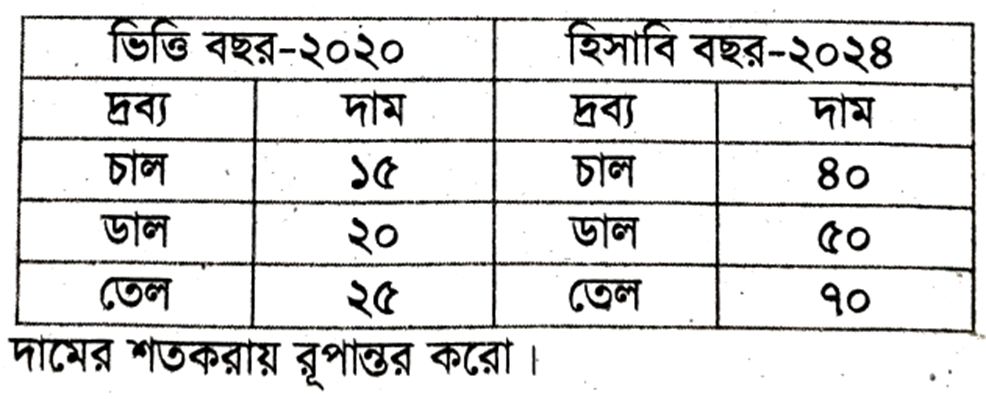 ভিত্তি বছর-২০২০ হিসাবি বছর-২০২৪
দ্রব্য দাম দ্রব্য দাম
চাল ১৫ চাল ৪০
ডাল ২০ ডাল ৫০
তেল ২৫ তেল ৭০
দামের শতকরায় রূপান্তর করো।